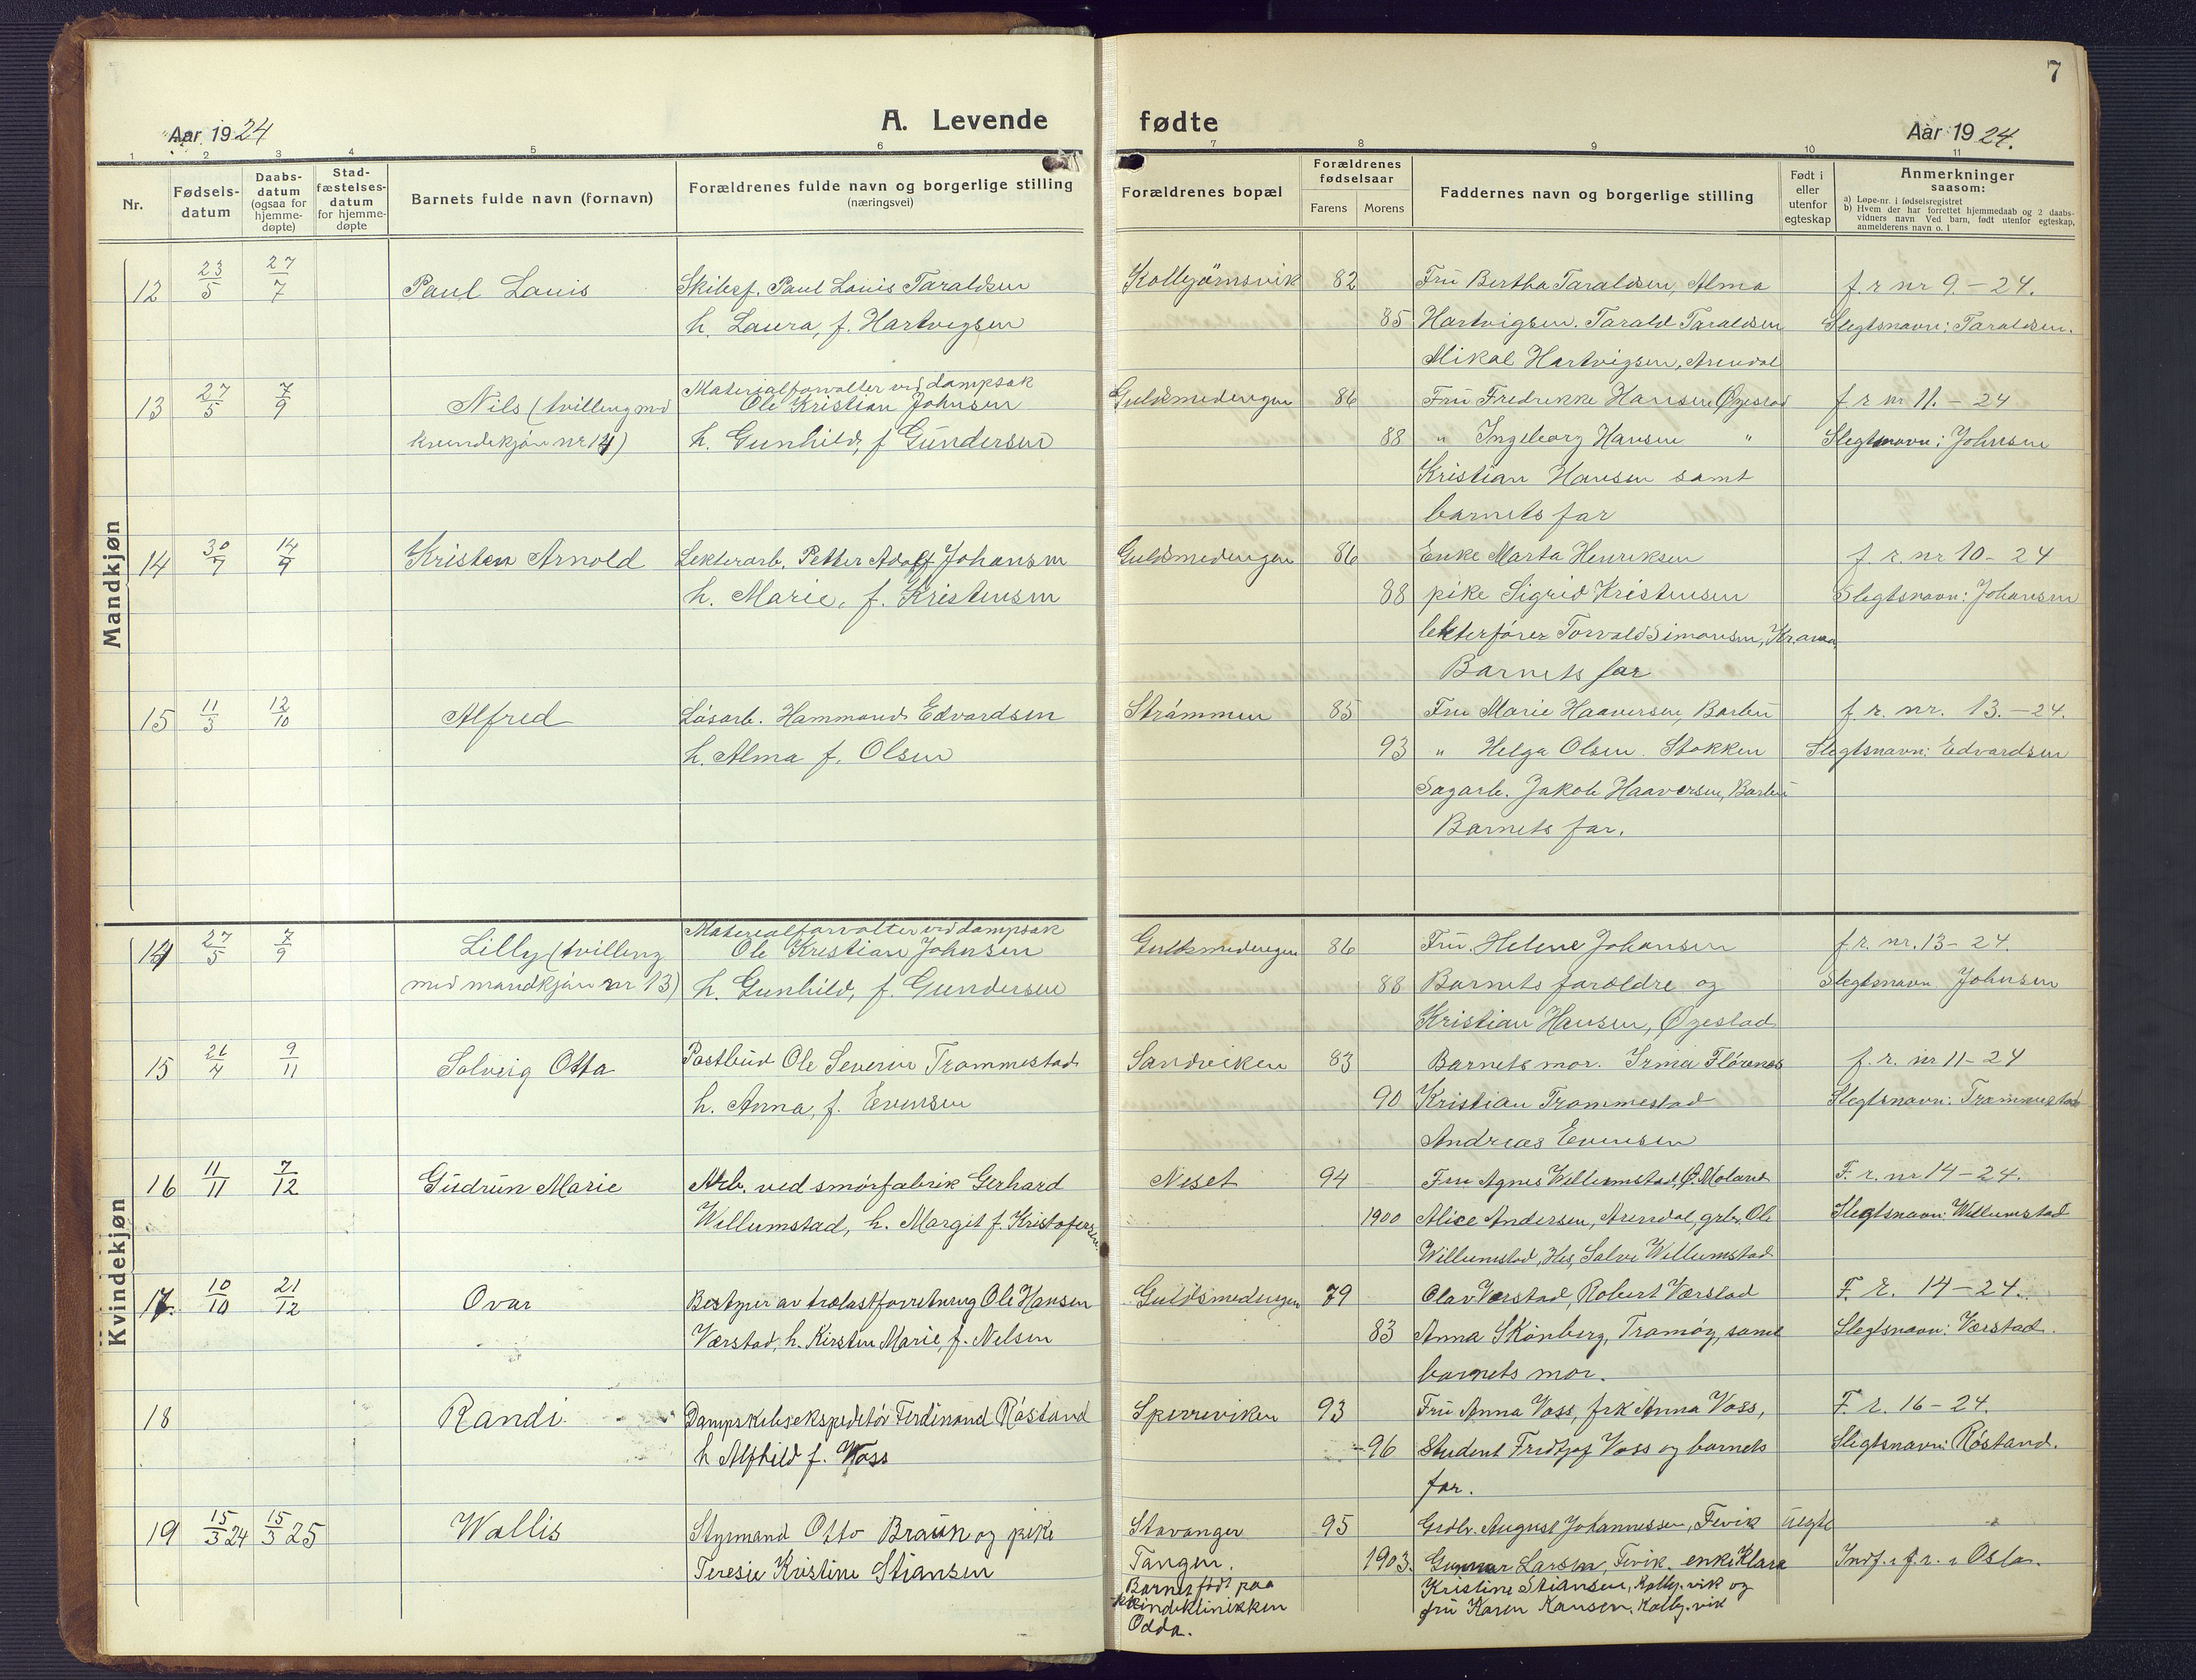 7
Aar 1924
A. Levende
fødte
Aar 1924.
1 2 3 4 5 6 7 8 9 10 11
Nr.
Fødsels-
datum
Daabs-
datum
(ogsaa for
hjemme-
døpte)
Stad-
fæstelses-
datum
for hjemme-
døpte
Barnets fulde navn (fornavn)
Forældrenes fulde navn og borgerlige stilling
(næringsvei)
Forældrenes bopæl
Forældrenes
fødselsaar
Farens
Morens
Faddernes navn og borgerlige stilling
Født i
eller
utenfor
egteskap
Anmerkninger
saasom:
a) Løpe-nr. i fødselsregistret
b) Hvem der har forrettet hjemmedaab og 2 daabs-
vidners navn Ved barn, født utenfor egteskap,
anmelderens navn o. l
Mandkjøn
12 23/5 27/7 Paul Louis Skibsf. Paul Louis Taraldsen Kolbjørnsvik 82 Fru Bertha Taraldsen, Alma f. r nr 9 – 24.
h. Laura, f. Hartvigsen 85 Hartvigsen. Tarald Taraldsen Slegtsnavn: Taraldsen.
Mikal Hartvigsen, Arendal
Materialforvalter ved dampsak
13 27/5 7/9 Nils (tvilling med Ole Kristian Johnsen Guldsmedengen 86 Fru Fredrikke Hansen Øyestad f r nr 11. – 24
kvindekjøn nr 14) h. Gunhild, f Gundersen 88 " Ingeborg Hansen " Slegtsnavn: Johnsen
Kristian Hansen samt
barnets far
14 30/7 14/9 Kristen Arnold Lekterarb. Petter Adolf Johansen Guldsmedengen 86 Enke Marta Henriksen f. r. nr 10 – 24
h. Marie, f. Kristensen 88 pike Sigrid Kristensen Slegtsnavn: Johansen
lekterfører Torvald Simonsen,
Barnets far
15 11/3 12/10 Alfred Løsarb. Hammond Edvardsen Strømmen 85 Fru Marie Haaversen, Barbu f. r. nr. 13. – 24.
h. Alma f. Olsen 93 " Helga Olsen. Stokken Slegtsnavn: Edvardsen
Sagarb. Jakob Haaversen, Barbu
Barnets far.
Kvindekjøn
Materialforvalter ved dampsak
14 27/5 7/9 Lilly (tvilling Ole Kristian Johnsen Guldsmedengen 86 Fru. Helene Johansen f. r. nr. 13 – 24.
med mandkjøn nr 13) h. Gunhild, f. Gundersen 88 Barnets foræoldre og Slegtsnavn Johnsen
Kristian Hansen, Øyestad
15 26/4 9/11 Solveig Otta Postbud Ole Severin Trommestad Sandviken 83 Barnets mor. Irma Flørenæs f. r. nr 11 – 24
h. Anna, f. Evensen 90 Kristian Trommestad Slegtsnavn: Trommestad
Andreas Evensen
16 11/11 7/12 Gudrun Marie Arb. ved smørfabrik Gerhard Neset 94 Fru Agnes Willumstad, Ø. Moland F. r. nr 14 – 24.
Willumstad, h. Margit f. Kristofersen. 1900 Alice Andersen, Arendal, grbr. Ole Slegtsnavn: Willumstad
Willumstad, His, Salve Willumstad
17. 10/10 21/12 Ovar Bestyrer av trælastforretning Ole Hansen Guldsmedengen 79 Olav Værstad, Robert Værstad F. r. 14 – 24.
Værstad, h. Kirsten Marie, f. Nelsen 83 Anna Skønberg, Tromøy, samt Slegtsnavn: Værstad.
barnets mor.
18 Randi. Dampskibsekspeditør Ferdinand Røstand Sperreviken 93 Fru Anna Voss, frk Anna Voss, F. r. 16 – 24.
h Alfhild f. Voss 96 Student Fridtjof Voss og barnets Slegtsnavn: Røstand.
far.
19 15/3 24 15/3 25 Wallis Styrmand Otto Braun og pike Stavanger 95 Grdbr. August Johannessen, Fevik uegte "
Teresie Kristine Stiansen Tangen. 1903. Gunnar Larsen, Fevik. enke Klara Indf. i f. r. i Oslo.
Barnet født paa Kristine Stiansen, Kolbj.vik og
kvindeklinikken fru Karen Hansen, Kolbj.vik
Odda.